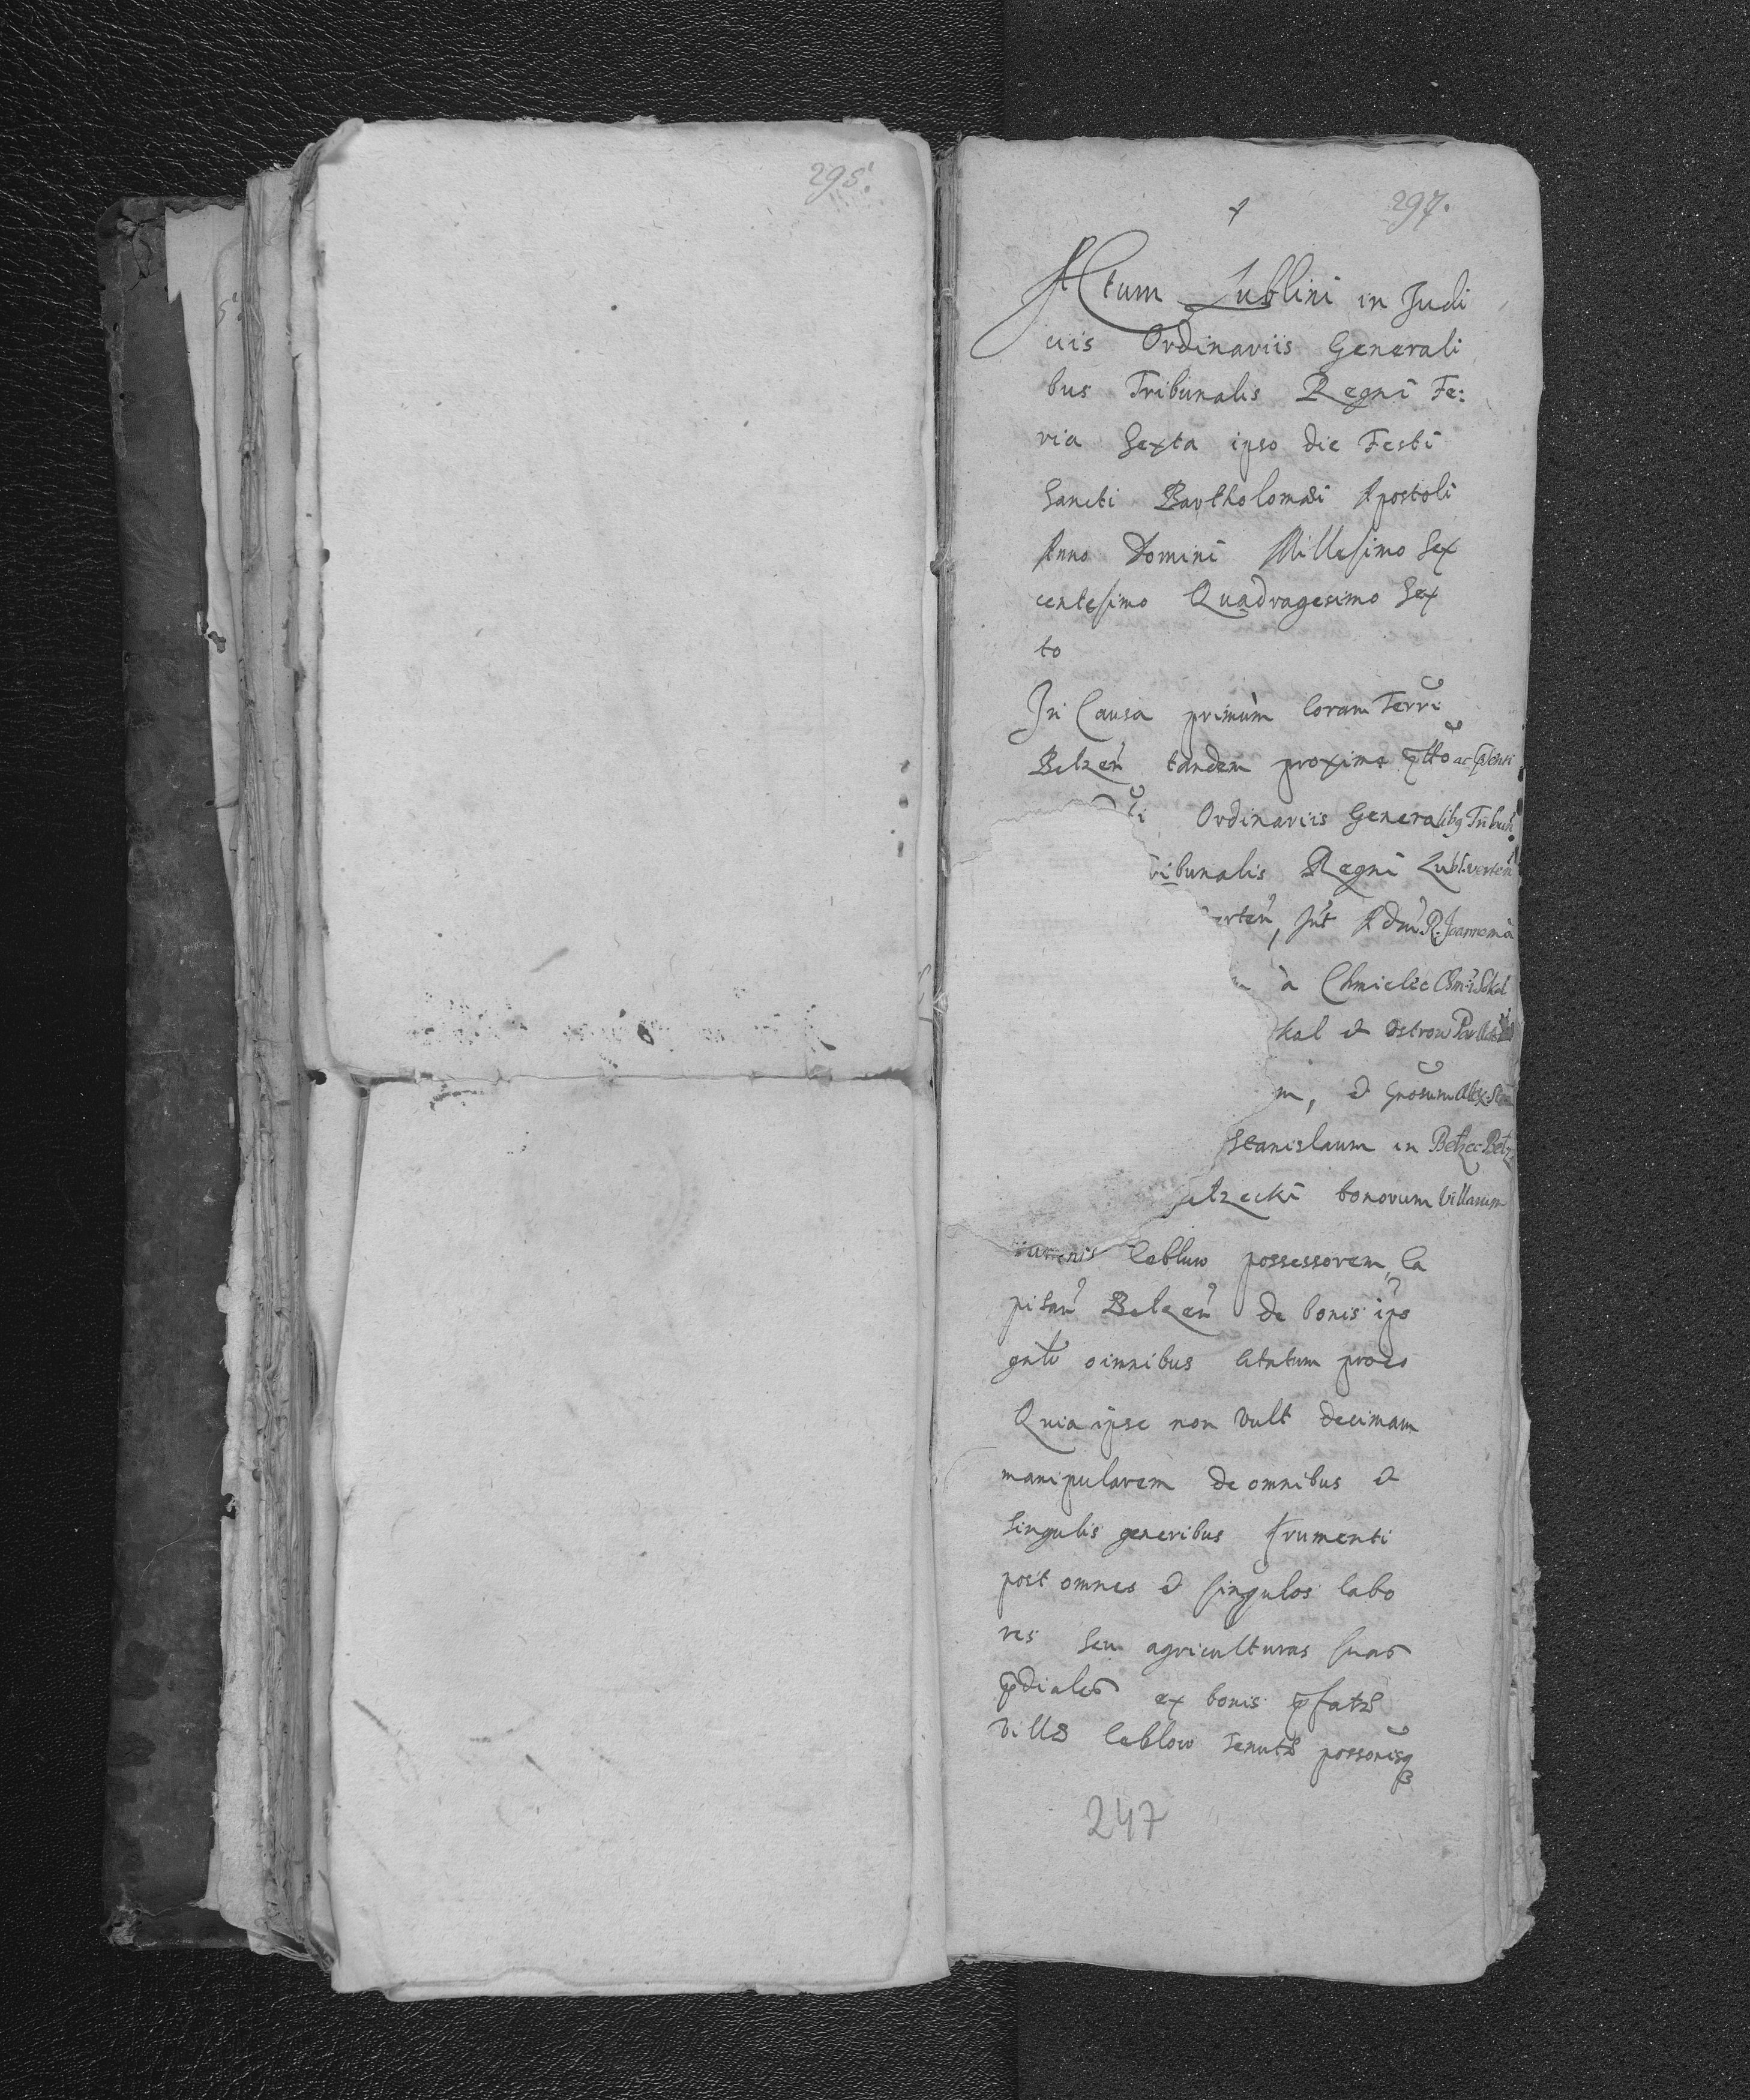 295.
297.
Actum Lublini in Judi
ciis Ordinariis Generali
bus Tribunalis Regni Fe:
ria Sexta ipso die Festi
Sancti Bartholomæi Apostoli
Anno Domini Millesimo Sex
centesimo Quadragesimo Sex
to
In Causa primùm Coram Terri
Belzen tandem proxime ac
Ordinariis Generalibq Tribun
ibunalis Regni Lubl.
erten, Int Adm R. Joannem à
à Chmielic Sokal
kal et Ostrow
m, et Gnosum Alex. 
Stanislaum in Betzec Betz
elzecki bonorum Villarum
Ceblow possessorem, Ca
pitan Belzen de bonis ipso
omnibus Citatum pro eo
Quia ipse non vult decimam
manipularem de omnibus et
Singulis generibus frumenti
post omnes et singulos labo
res seu agriculturas suas
prdiales ex bonis pfatæ
Villæ Ceblow Tenutæ possonisq
247